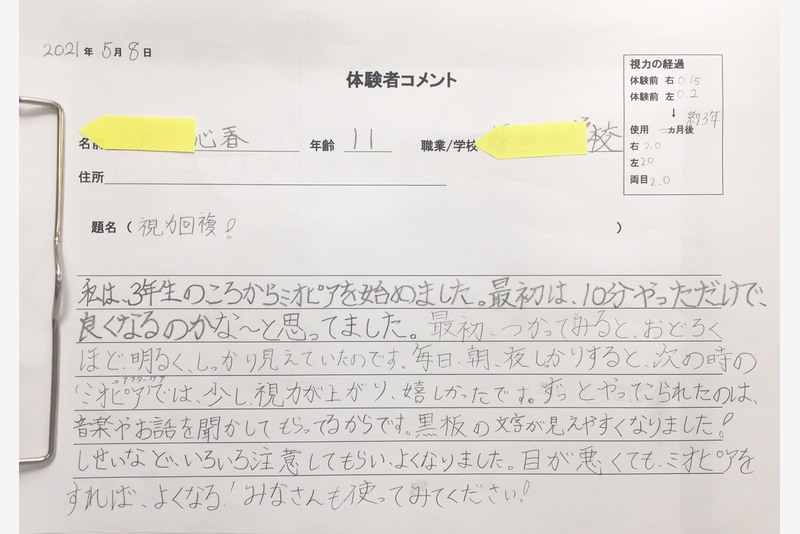 2021年 5月 8日
体験者コメント
視力の経過
体験前 右 0.15
体験前 左 0.2
↓ 約3年
使用 カ月後
右 2.0
左 2.0
両目 2.0
名前 心春 年齢 11 職業/学校 校
住所
題名 ( 視力回複! )
私は、3年生のころからミオピアを始めました。最初は、10分やっただけで、
良くなるのかな〜と思ってました。最初、つかってみると、おどろく
ほど、明るく、しっかり見えていたのです。毎日、朝、夜しかりすると、次の時の
"ミオピア"では、少し視力が上がり、嬉しかったです。ずっとやってこられたのは、
音楽やお話を聞かしてもらってるからです。黒板の文字が見えやすくなりました!
しせいなど、いろいろ注意してもらい、よくなりました。目が悪くても、ミオピアを
すれば、よくなる!みなさんも使ってみてください!